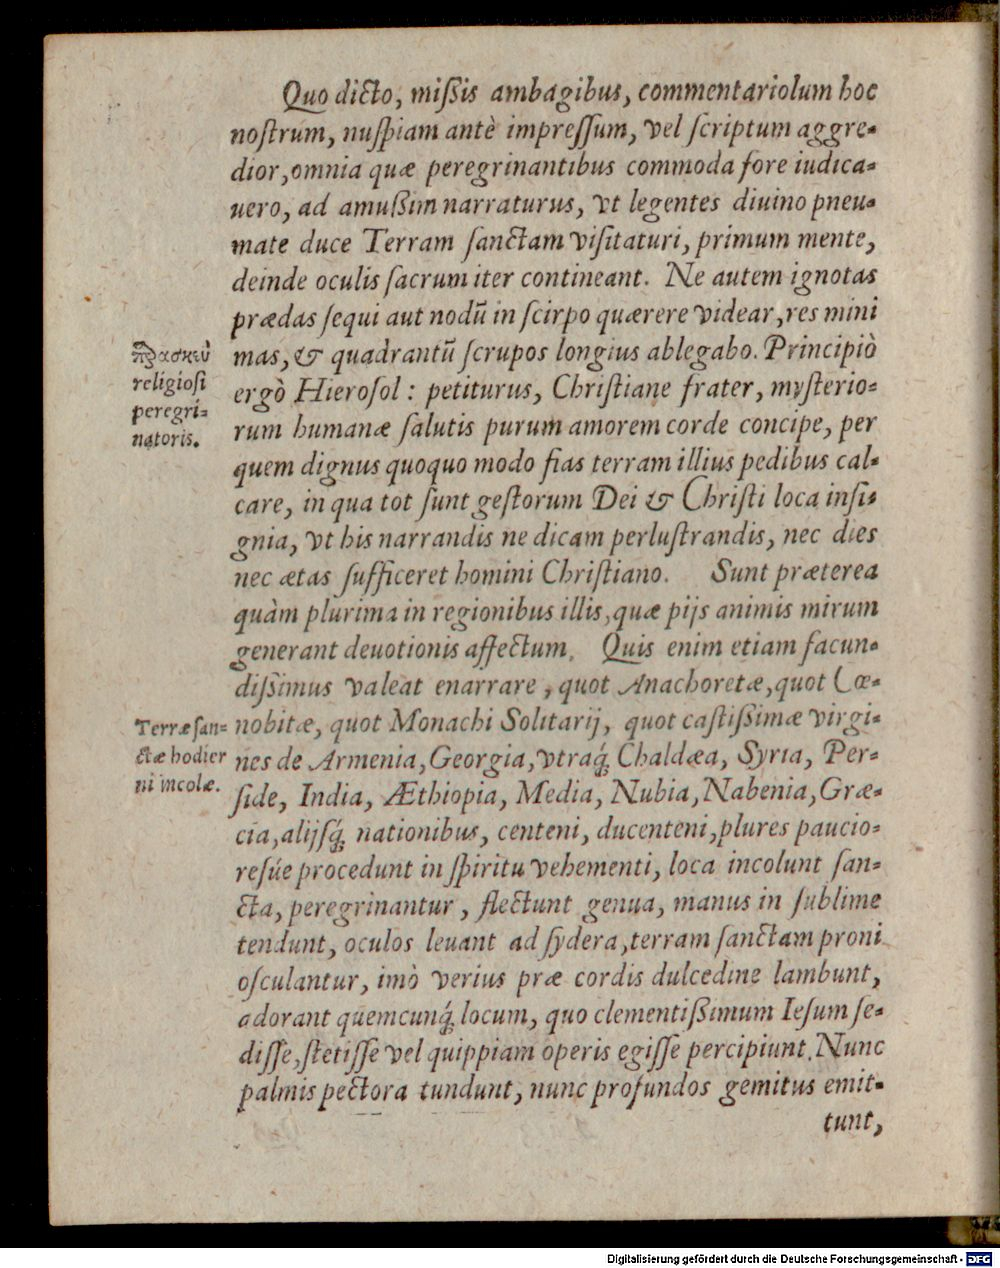 Quo dicto, mißis ambagibus, commentariolum hoc
noſtrum, nuſpiam antè impreſſum, vel ſcriptum aggre-
dior, omnia quæ peregrinantibus commoda fore iudica-
uero, ad amußim narraturus, vt legentes diuino pneu-
mate duce Terram ſanctam viſitaturi, primum mente,
deinde oculis ſacrum iter contineant. Ne autem ignotas
prædas ſequi aut nodū in ſcirpo quærere videar, res mini
mas, & quadrantū ſcrupos longius ablegabo. Principiò
ergò Hieroſol: petiturus, Chriſtiane frater, myſterio-
rum humanæ ſalutis purum amorem corde concipe, per
quem dignus quoquo modo fias terram illius pedibus cal-
care, in qua tot ſunt geſtorum Dei & Chriſti loca inſi-
gnia, vt his narrandis ne dicam perluſtrandis, nec dies
nec ætas ſufficeret homini Chriſtiano. Sunt præterea
quàm plurima in regionibus illis, quæ pijs animis mirum
generant deuotionis affectum. Quis enim etiam facun-
dißimus valeat enarrare, quot Anachoretæ, quot Cœ-
nobitæ, quot Monachi Solitarij, quot caſtißimæ virgi-
nes de Armenia, Georgia, vtraq́; Chaldæa, Syria, Per-
ſide, India, Æthiopia, Media, Nubia, Nabenia, Græ-
cia, alijſq́; nationibus, centeni, ducenteni, plures paucio-
reſúe procedunt in ſpiritu vehementi, loca incolunt ſan-
cta, peregrinantur, flectunt genua, manus in ſublime
tendunt, oculos leuant ad ſydera, terram ſanctam proni
oſculantur, imò verius præ cordis dulcedine lambunt,
adorant quemcunq́; locum, quo clementißimum Ieſum ſe-
diſſe, ſtetiſſe vel quippiam operis egiſſe percipiunt. Nunc
palmis pectora tundunt, nunc profundos gemitus emit-
tunt,
religioſi
peregri-
natoris.
Terræ ſan-
ctæ hodier
ni incolæ.
Digitalisierung gefördert durch die Deutsche Forschungsgemeinschaft - DFG